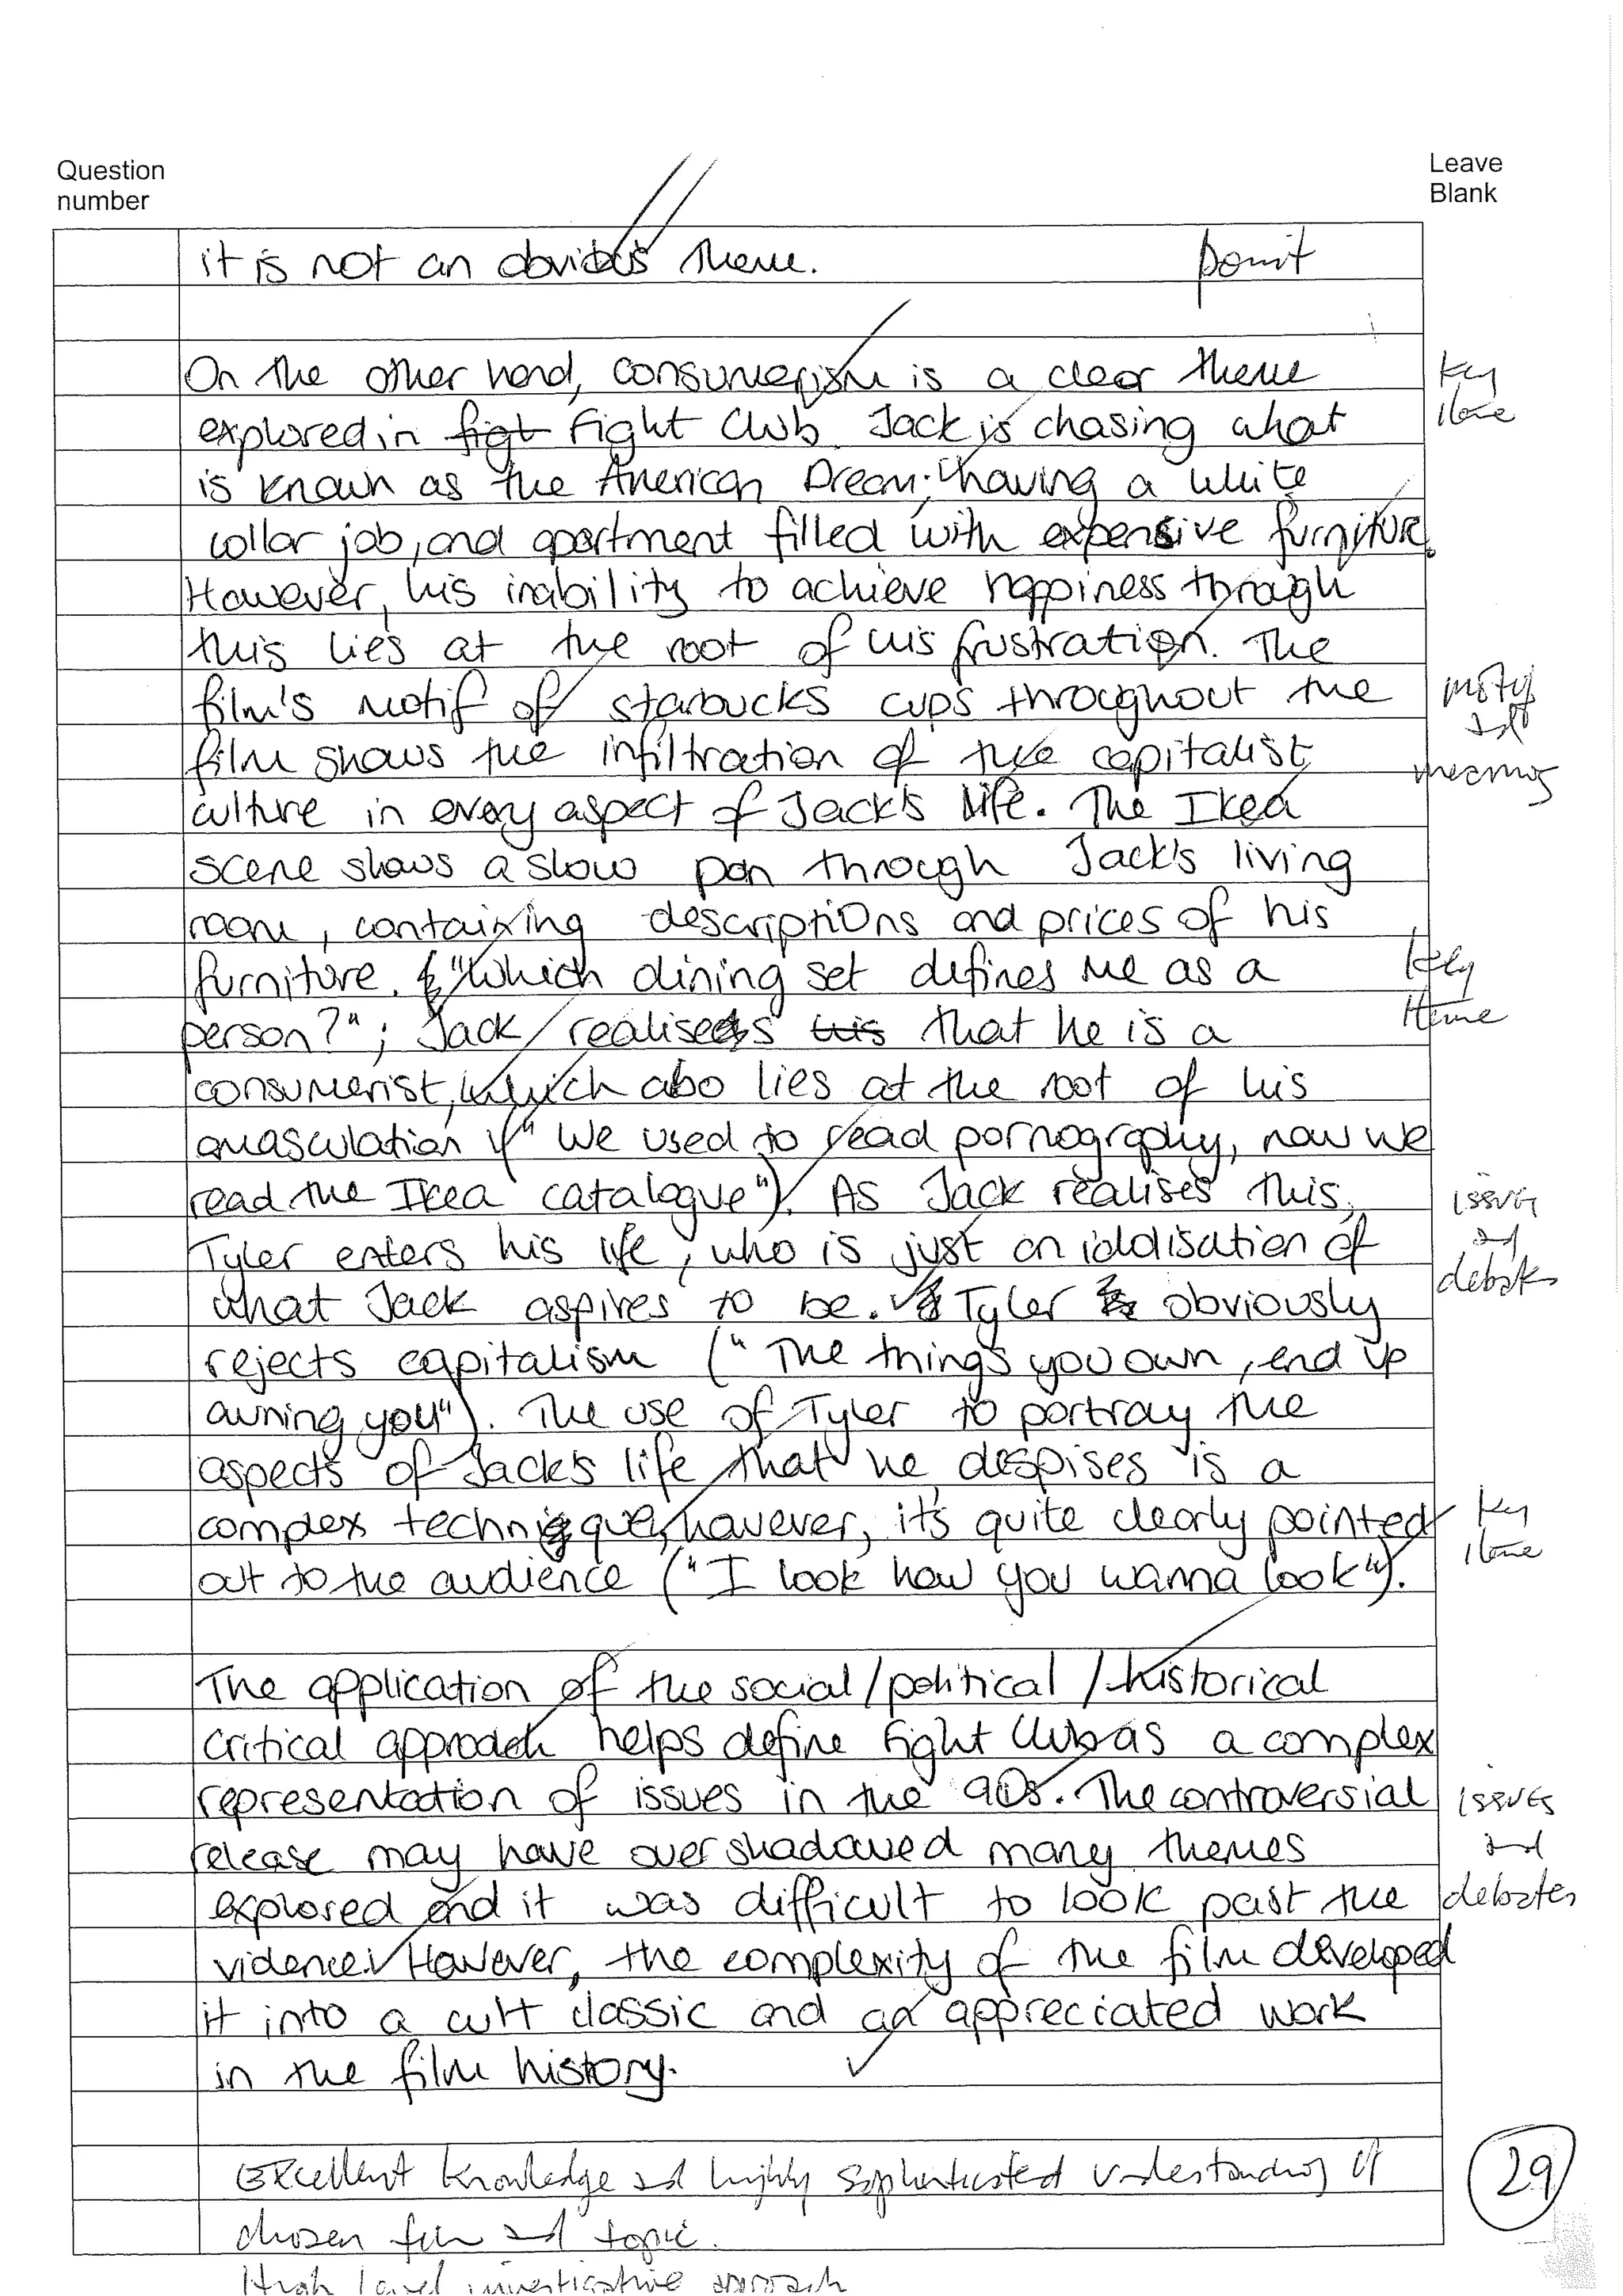 Question
number
Leave
Blank
it is not an obvious theme. point
On the other hand, consumerism is a clear theme key
explored in figt Fight Club. Jack is chasing what theme
is known as the American Dream; having a white
collar job, and apartment filled with expensive furniture.
However, his inability to achieve happiness through
this lies at the root of his frustration. The
film's motif of starbucks cups throughout the motif
film shows the infiltration of the capitalist and
culture in every aspect of Jack's life. The Ikea meaning
scene shows a slow pan through Jack's living
room, containing descriptions and prices of his
furniture. "Which dining set defines me as a key
person?"; Jack realises this that he is a theme
consumerist, which also lies at the root of his
emasculation ("We used to read pornography, now we
read the Ikea catalogue"). As Jack realises this, issues
Tyler enters his life, who is just an idolisation of and
what Jack aspires to be. Tyler obviously debates
rejects capitalism ("The things you own, end up
owning you"). The use of Tyler to portray the
aspects of Jack's life that he despises is a
complex technique, however, it's quite clearly pointed key
out to the audience ("I look how you wanna look"). theme
The application of the social/political/historical
critical approach helps define Fight Club as a complex
representation of issues in the 90s. The controversial issues
release may have overshadowed many themes and
explored and it was difficult to look past the debates
violence. However, the complexity of the film developed
it into a cult classic and an appreciated work
in the film history.
Excellent knowledge and highly sophisticated understanding of 29
chosen film and topic.
High level investigative approach